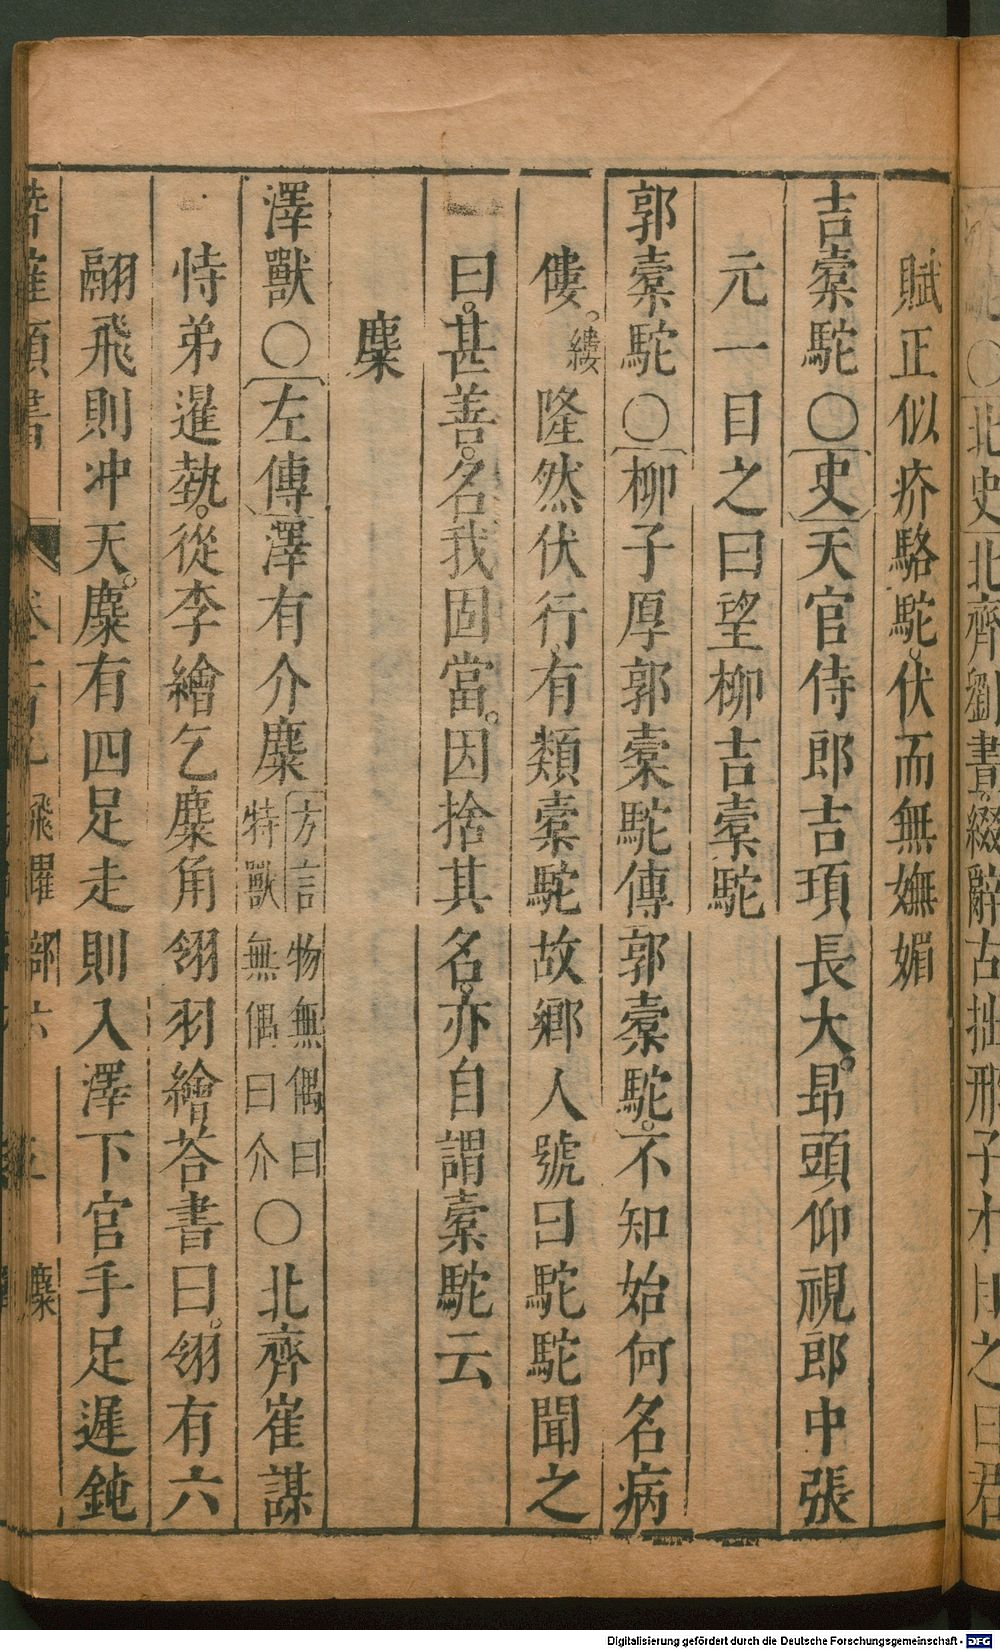 北史 北齊劉晝綴辭古拙邢子才曰之曰君
賦正似疥駱駝。伏而無嫵媚
吉槖駝〇史天官侍郎吉頊長大。昂頭仰視郎中張
元一目之曰望柳吉槖駝
郭槖駝〇柳子厚郭槖駝傳郭槖駝。不知始何名病
僂。縷隆然伏行有類槖駝故鄉人號曰駝駝聞之
曰。甚善。名我固當。因捨其名。亦自謂槖駝云
麋
澤獸〇左傳澤有介麋方言物無偶曰特獸無偶曰介〇北齊崔謀
恃弟暹勢。從李繪乞麋角翎羽繪荅書曰。翎有六
翮飛則冲天。麋有四足走則入澤下官手足遲鈍
類書 飛躍部六 麋
Digitalisierung gefördert durch die Deutsche Forschungsgemeinschaft - DFG